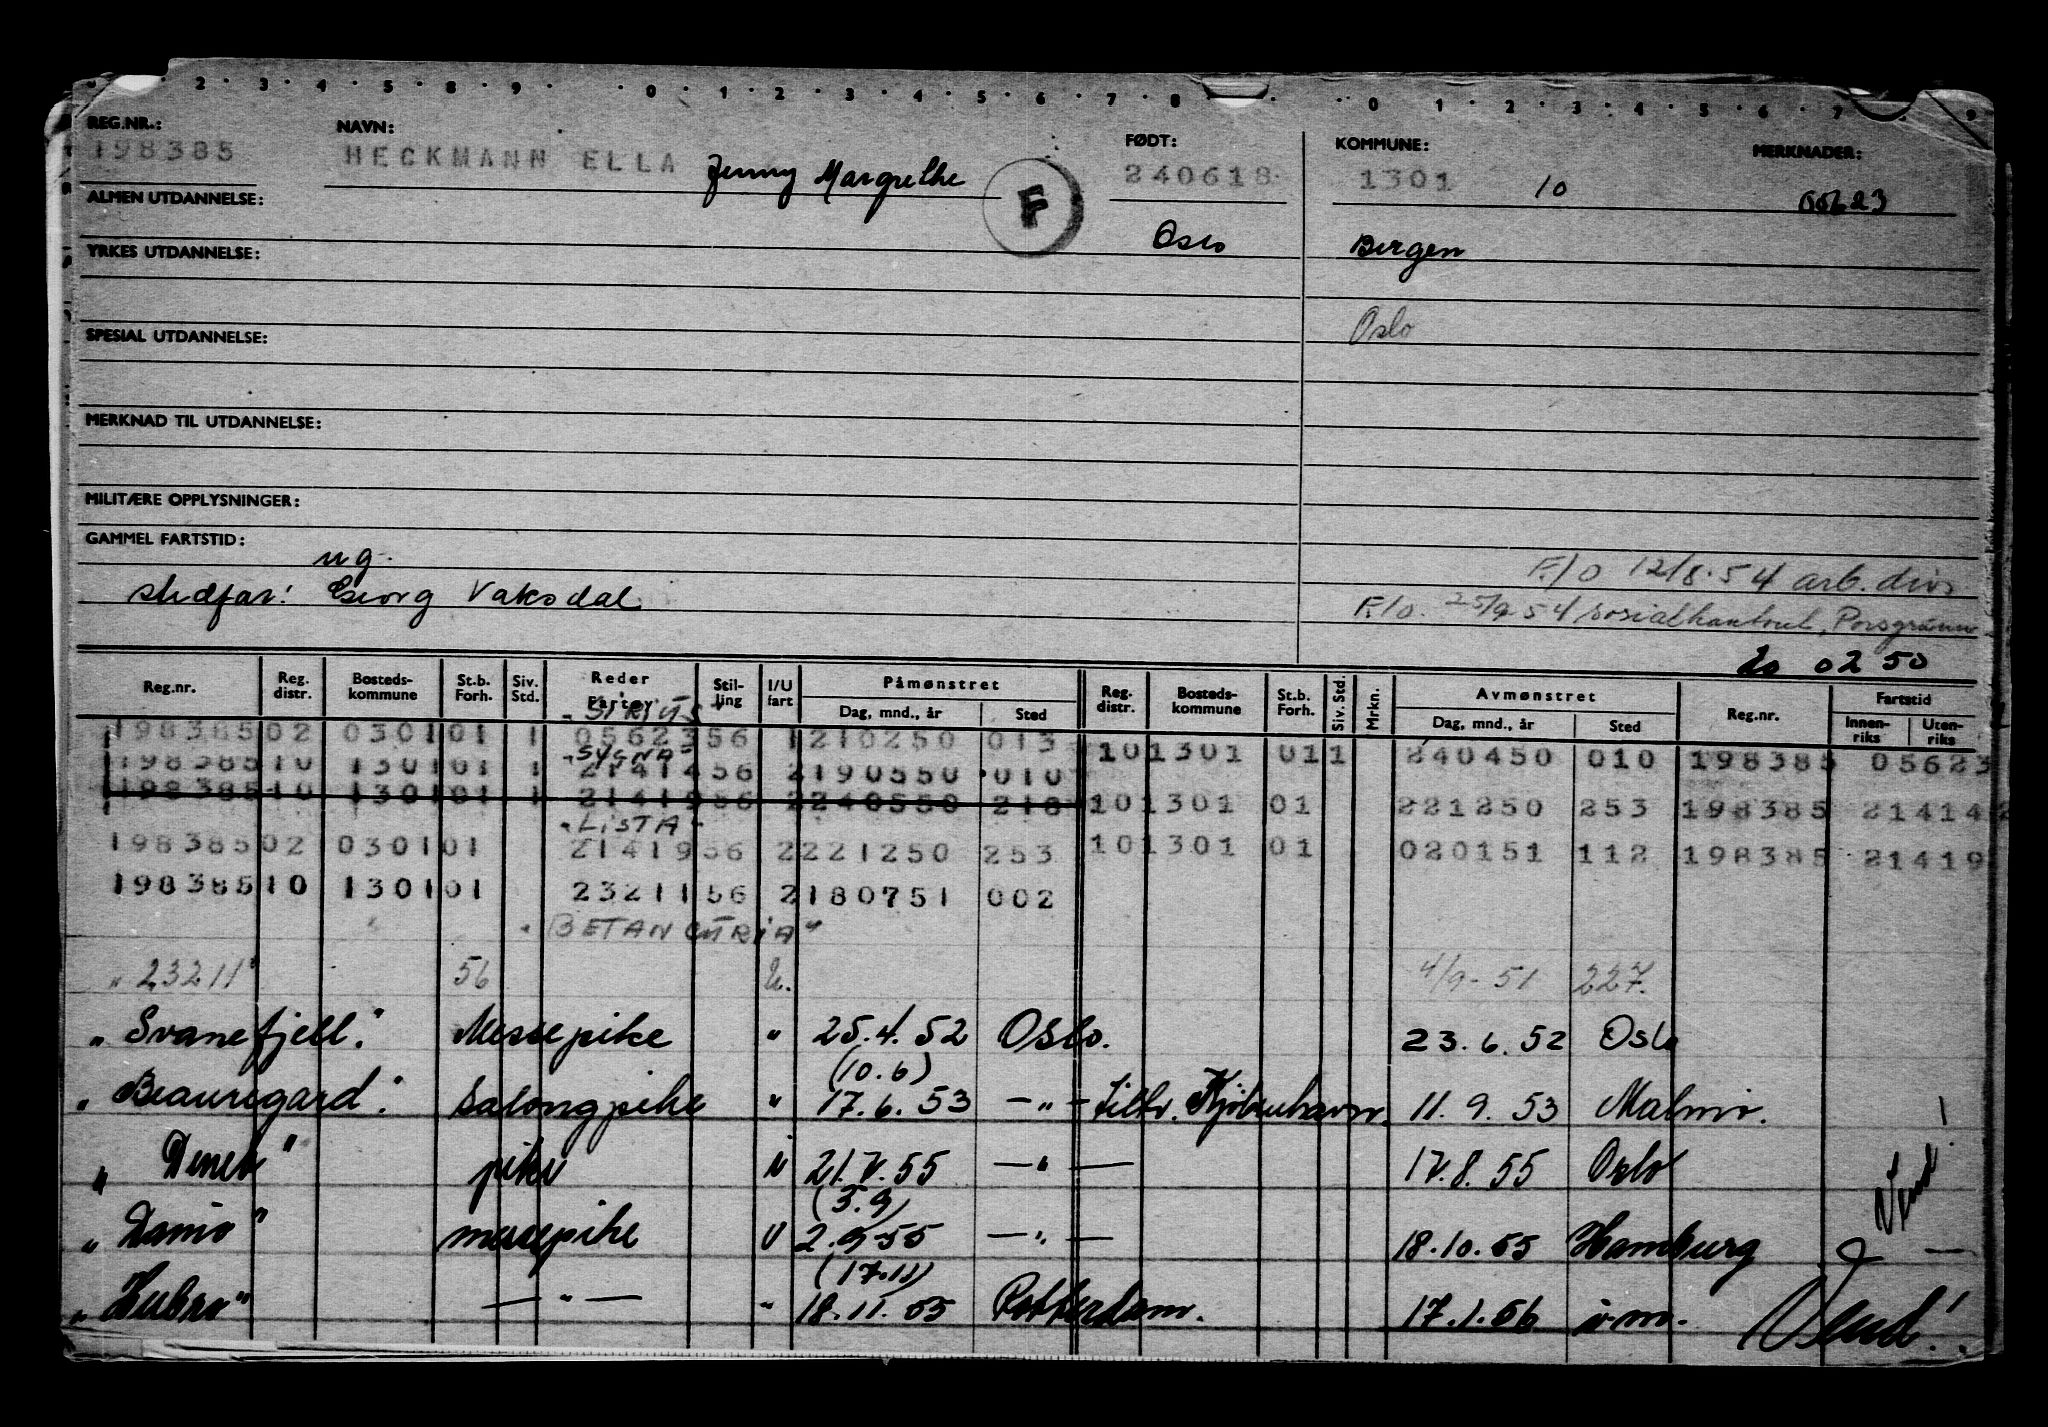 2 3 4 5 8 9 0 1 2 3 4 5 6 7 8 0 1 2 3 4 5 6 7 9
REG.NR.: NAVN: FØDT: KOMMUNE: MERKNADER:
198385 HECKMANN ELLA Jenny Margrethe F 240618 1301 10 05623
ALMEN UTDANNELSE:
Oslo Bergen
YRKES UTDANNELSE:
Oslo
SPESIAL UTDANNELSE:
MERKNAD TIL UTDANNELSE:
MILITÆRE OPPLYSNINGER:
GAMMEL FARTSTID:
ug.
F/o 12/8.54 arb. div.
stedfar: Georg Vaksdal
F/o. 25/9 54 sosialkontoret, Porsgrunn
20 02 50
Reg.nr. Reg. distr. Bosteds-kommune St.b. Forh. Siv. Std. Reder Fartøy Stil-ling I/U fart Påmønstret Dag, mnd., år Sted Reg. distr. Bosteds-kommune St.b. Forh. Siv. Std. Mrkn. Avmønstret Dag, mnd., år Sted Reg.nr. Fartstid Innen-riks Uten-riks
"SIRIUS"
198385 02 0301 01 1 05623 56 1 210250 013 10 1301 01 1 240450 010 198385 05623
"SYGNA"
198385 10 1301 01 1 21414 56 2 190550 010
198385 10 1301 01 1 21419 56 2 240550 218 10 1301 01 221250 253 198385 21414 2
"LISTA"
198385 02 0301 01 21419 56 2 221250 253 10 1301 01 020151 112 198385 21419
198385 10 1301 01 23211 56 2 180751 002
"BETANCURIA"
"23211" 56 U. 4/9-51 227.
"Svanefjell". Messepike " 25.4.52 Oslo. 23.6.52 Oslo
(10.6)
"Beauregard". Salongpike " 17.6.53 —"— Tiltr. Kjøbenhavn. 11.9.53 Malmø.
"Deneb" pike U 21.7.55 —"— 17.8.55 Oslo
(3.9)
"Damo" messepike U 2.9.55 —"— 18.10.55 Hamburg —
(17.11)
"Hubro" —"— " 18.11.55 Rotterdam. 17.1.56 i.m. Vend!
Vend!